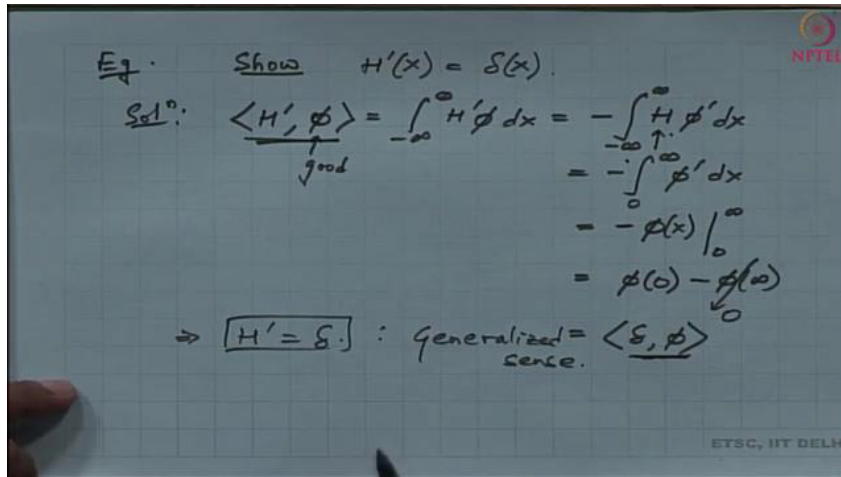 NPTEL
Eg. Show H'(x) = δ(x).
Solⁿ: <H', φ> = ∫_{-∞}^{∞} H'φ dx = - ∫_{-∞}^{∞} H φ' dx
good
= - ∫_0^∞ φ' dx
= - φ(x) |_0^∞
= φ(0) - φ(∞)
0
⇒ H' = δ. : Generalized = <δ, φ>
sense.
ETSC, IIT DELH